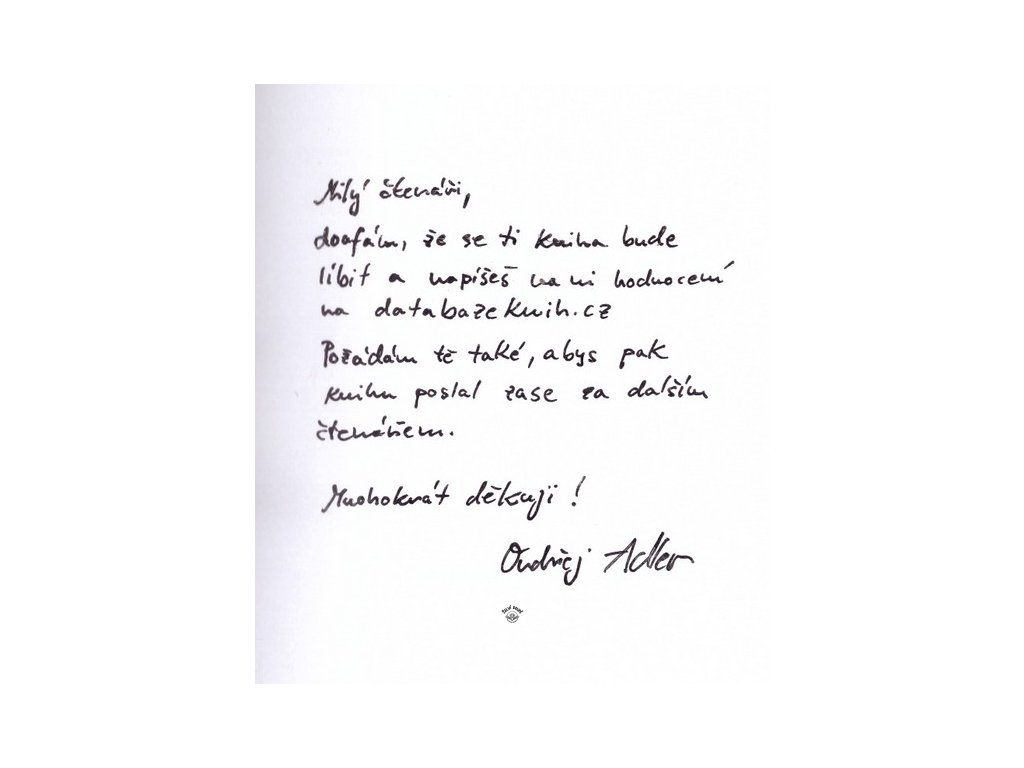 Milý čtenáři,
doufám, že se ti kniha bude
líbit a napíšeš na ni hodnocení
na databazeknih.cz
Požádám tě také, abys pak
knihu poslal zase za dalším
čtenářem.
Mnohokrát děkuji!
Ondřej Adler